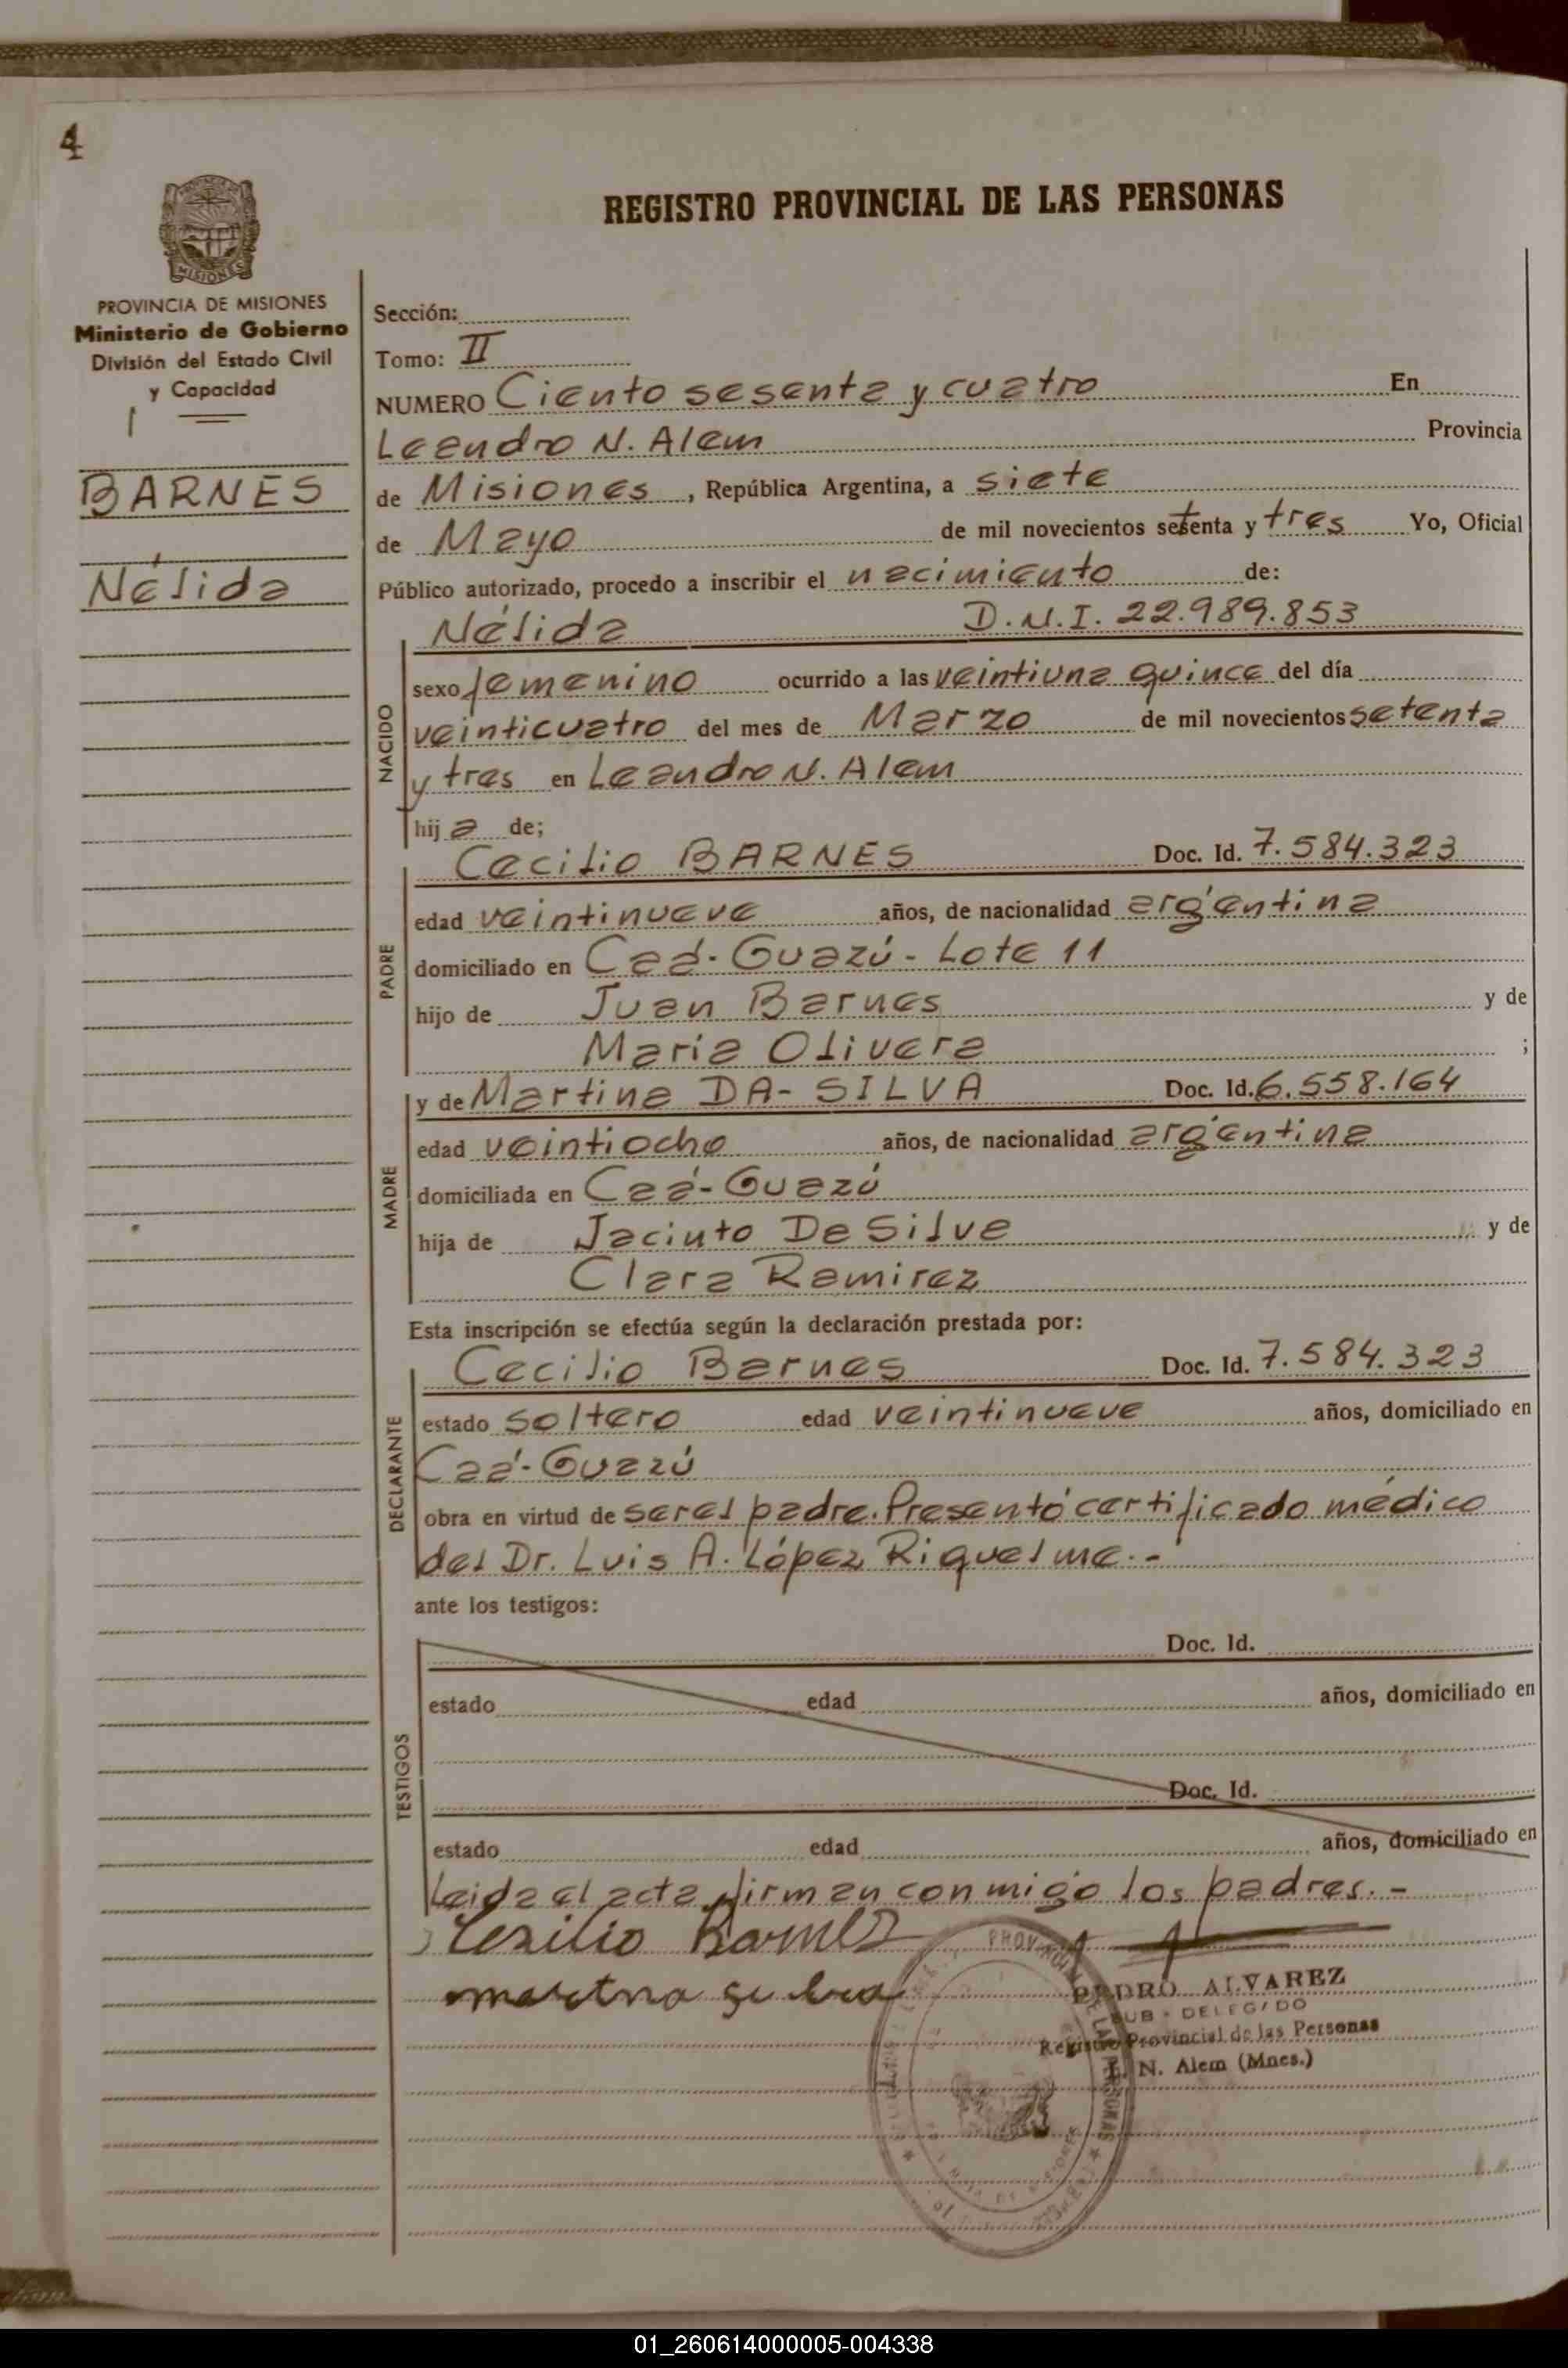 4
REGISTRO PROVINCIAL DE LAS PERSONAS
MISIONES
PROVINCIA DE MISIONES
Ministerio de Gobierno
División del Estado Civil
y Capacidad
BARNES
Nélida
Sección:
Tomo: II
NUMERO Ciento sesenta y cuatro En
Leandro N. Alem Provincia
de Misiones, República Argentina, a siete
de Mayo de mil novecientos setenta y tres Yo, Oficial
Público autorizado, procedo a inscribir el nacimiento de:
Nélida D.N.I. 22.989.853
NACIDO
sexo femenino ocurrido a las veintiuna quince del día
veinticuatro del mes de Marzo de mil novecientos setenta
y tres en Leandro N. Alem
hija de;
Cecilio BARNES Doc. Id. 7.584.323
PADRE
edad veintinueve años, de nacionalidad argentina
domiciliado en Caá-Guazú - Lote 11
hijo de Juan Barnes y de
Maria Olivera ;
y de Martina DA-SILVA Doc. Id. 6.558.164
MADRE
edad veintiocho años, de nacionalidad argentina
domiciliada en Caá-Guazú
hija de Jacinto Da Silva y de
Clara Ramirez
Esta inscripción se efectúa según la declaración prestada por:
Cecilio Barnes Doc. Id. 7.584.323
DECLARANTE
estado soltero edad veintinueve años, domiciliado en
Caá-Guazú
obra en virtud de ser el padre. Presentó certificado médico
del Dr. Luis A. López Riquelme.-
ante los testigos:
TESTIGOS
Doc. Id.
estado edad años, domiciliado en
Doc. Id.
estado edad años, domiciliado en
Leida el acta, firman conmigo los padres.-
Cesilio Barnes
PEDRO ALVAREZ
SUB-DELEGADO
Registro Provincial de las Personas
L. N. Alem (Mnes.)
01_260614000005-004338